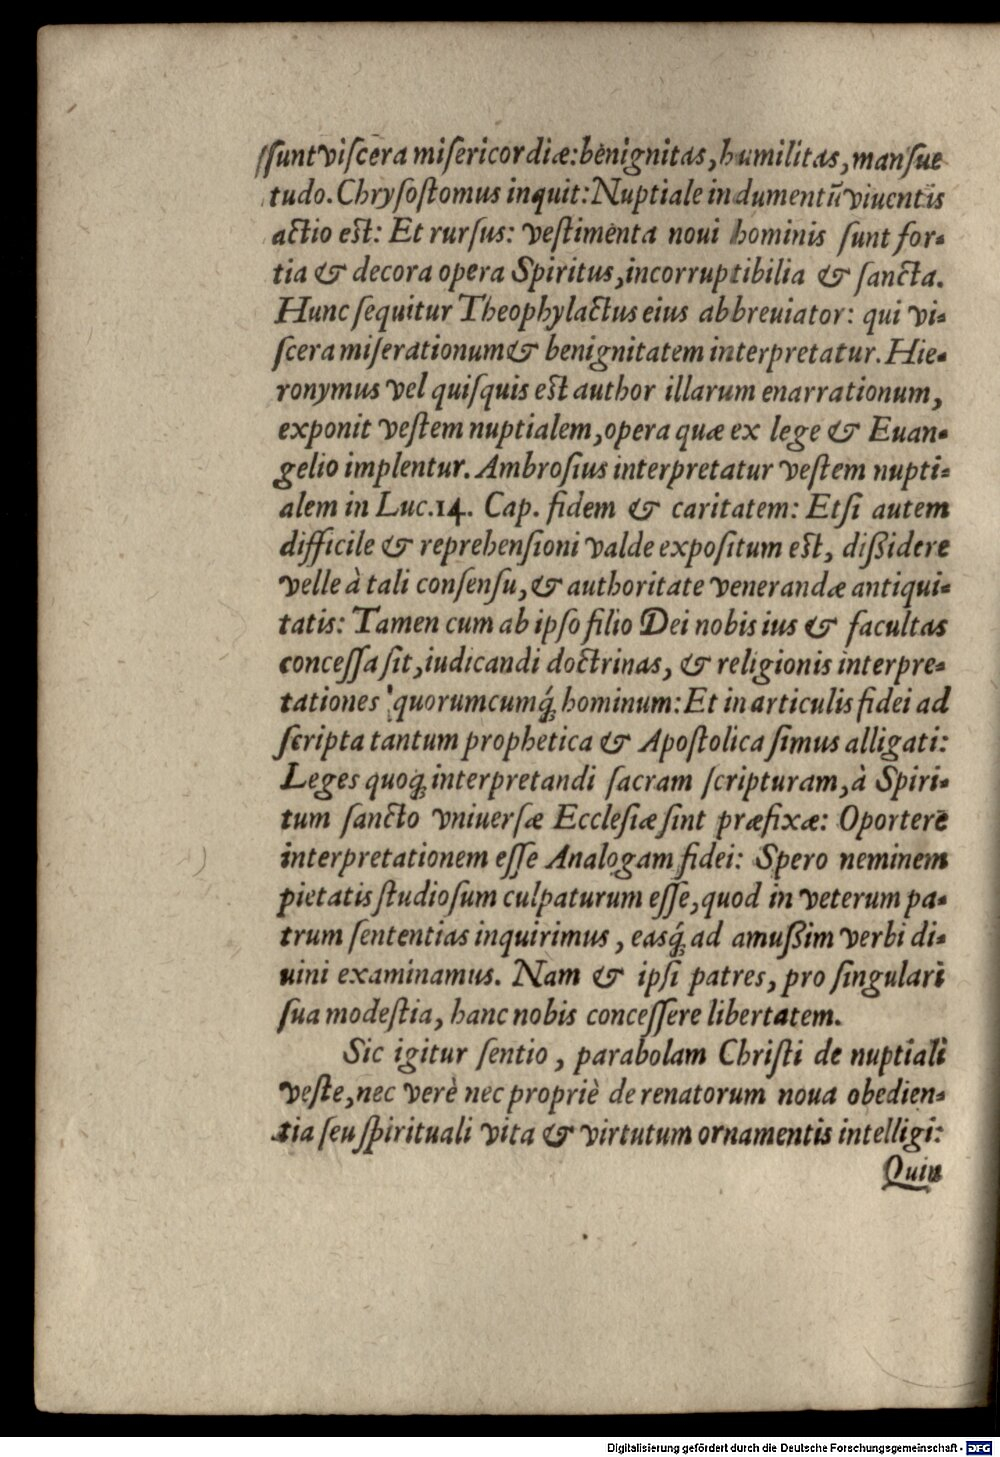 sunt viscera misericordiæ: benignitas, humilitas, mansue
tudo. Chrysostomus inquit: Nuptiale indumentū viuentis
actio est: Et rursus: vestimenta noui hominis sunt for-
tia & decora opera Spiritus, incorruptibilia & sancta.
Hunc sequitur Theophylactus eius abbreuiator: qui vi-
scera miserationum & benignitatem interpretatur. Hie-
ronymus vel quisquis est author illarum enarrationum,
exponit vestem nuptialem, opera quæ ex lege & Euan-
gelio implentur. Ambrosius interpretatur vestem nupti-
alem in Luc. 14. Cap. fidem & caritatem: Etsi autem
difficile & reprehensioni valde expositum est, dißidere
velle à tali consensu, & authoritate venerandæ antiqui-
tatis: Tamen cum ab ipso filio Dei nobis ius & facultas
concessa sit, iudicandi doctrinas, & religionis interpre-
tationes quorumcumq́; hominum: Et in articulis fidei ad
scripta tantum prophetica & Apostolica simus alligati:
Leges quoq; interpretandi sacram scripturam, à Spiri-
tum sancto vniuersæ Ecclesiæ sint præfixæ: Oportere
interpretationem esse Analogam fidei: Spero neminem
pietatis studiosum culpaturum esse, quod in veterum pa-
trum sententias inquirimus, easq́; ad amußim verbi di-
uini examinamus. Nam & ipsi patres, pro singulari
sua modestia, hanc nobis concessere libertatem.
Sic igitur sentio, parabolam Christi de nuptiali
veste, nec verè nec propriè de renatorum noua obedien-
tia seu spirituali vita & virtutum ornamentis intelligi:
Quin
Digitalisierung gefördert durch die Deutsche Forschungsgemeinschaft - DFG